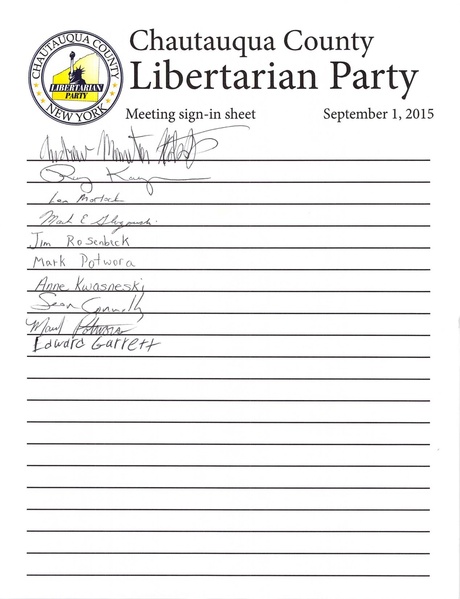 CHAUTAUQUA COUNTY
LIBERTARIAN
PARTY
NEW YORK
Chautauqua County
Libertarian Party
Meeting sign-in sheet September 1, 2015
Andrew
Ray
Len
Mark E
Jim Rosenbick
Mark Potwora
Anne Kwasneski
Sean Connolly
Potwora
Edward Garrett